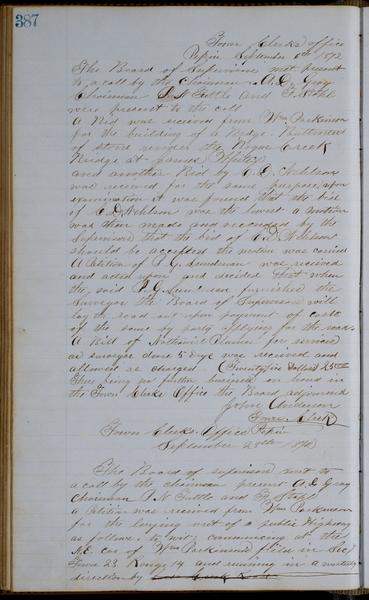 387
Town Clerks office
Pepin September 6th 1872
The Board of Supervisors met present
to a call by the Chairman A.D. Gray
Chairman P. N Tuttle and F. Stahl
were present to the call
A Bid was received from Wm Parkinson
for the building of a Bridge Buttment
of stone under the Bogus Creek
Bridge at James
and another Bid by C. D.
was received for the same purpose upon
examination it was found that the bid
of C. D. was the lowest a motion
was then made and seconded by the
Supervisors that the bid of C. D.
should be accepted the motion was carried
A Petition of P. G. was received
and acted upon and decided that when
the said P. G. furnished the
Surveyor the Board of Supervisors will
lay the road out upon payment of costs
of the same by party applying for the road
A Bill of Nathaniel for service
as surveyor done 5 Days was received and
allowed as charged (Twenty five Dollars) 25
There being no further business on hand in
the Town Clerks Office the Board adjourned
John Anderson
Town Clerk
Town Clerks Office Pepin
September 25th 1872
The Board of supervisors met to
a call by the chairman present A. D. Gray
Chairman P. N Tuttle and F. Stahl
A Petition was received from Wm Parkinson
for the laying out of a public Highway
as follows to wit, commencing at the
N.E. cor of Wm Parkinsons field in Sec
Town 23 Range 14 and running in a westerly
direction by